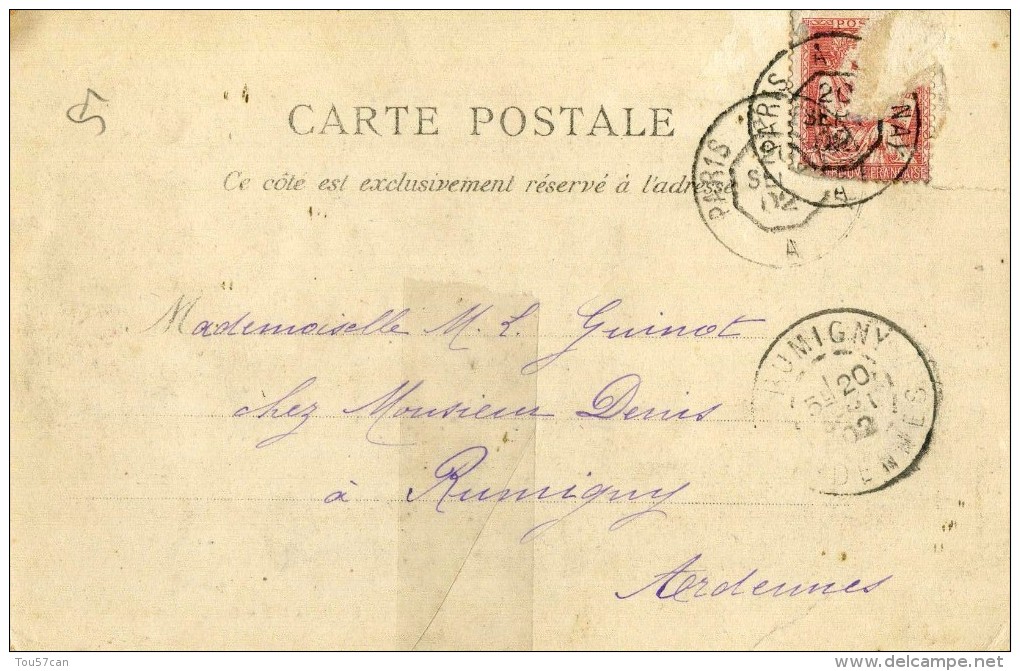 5
POS
CARTE POSTALE
Ce côté est exclusivement réservé à l'adresse
PARIS A NA
20
SEPT
02
A
FRANÇAISE
PARIS
SEPT
02
A
Mademoiselle M. L. Guinot
chez Monsieur Denis
à Rumigny
Ardennes
RUMIGNY
20
02
DENNES
Tou57can
www.delcampe.net